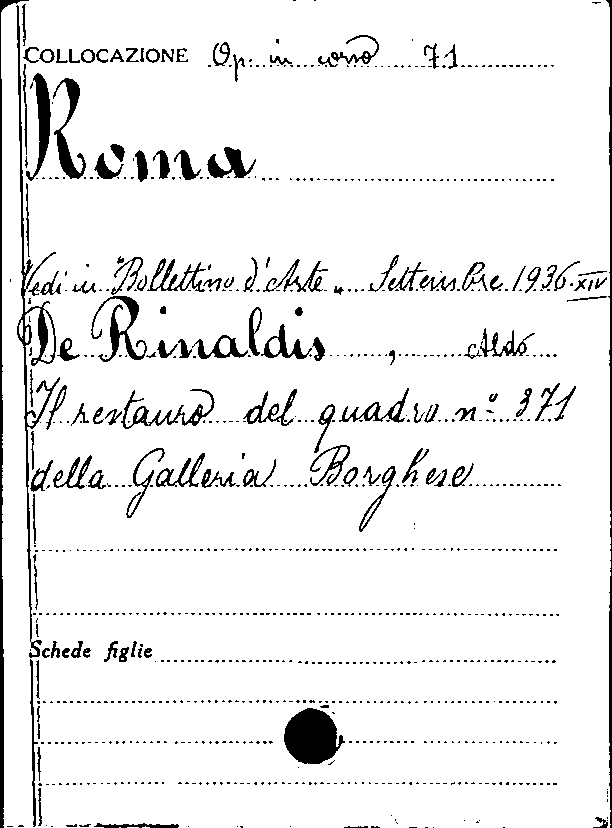 COLLOCAZIONE Op. in corso 71
Roma
Vedi in "Bollettino d'Arte„ Settembre 1936·XIV
De Rinaldis, Aldo
Il restauro del quadro n.º 371
della Galleria Borghese
Schede figlie